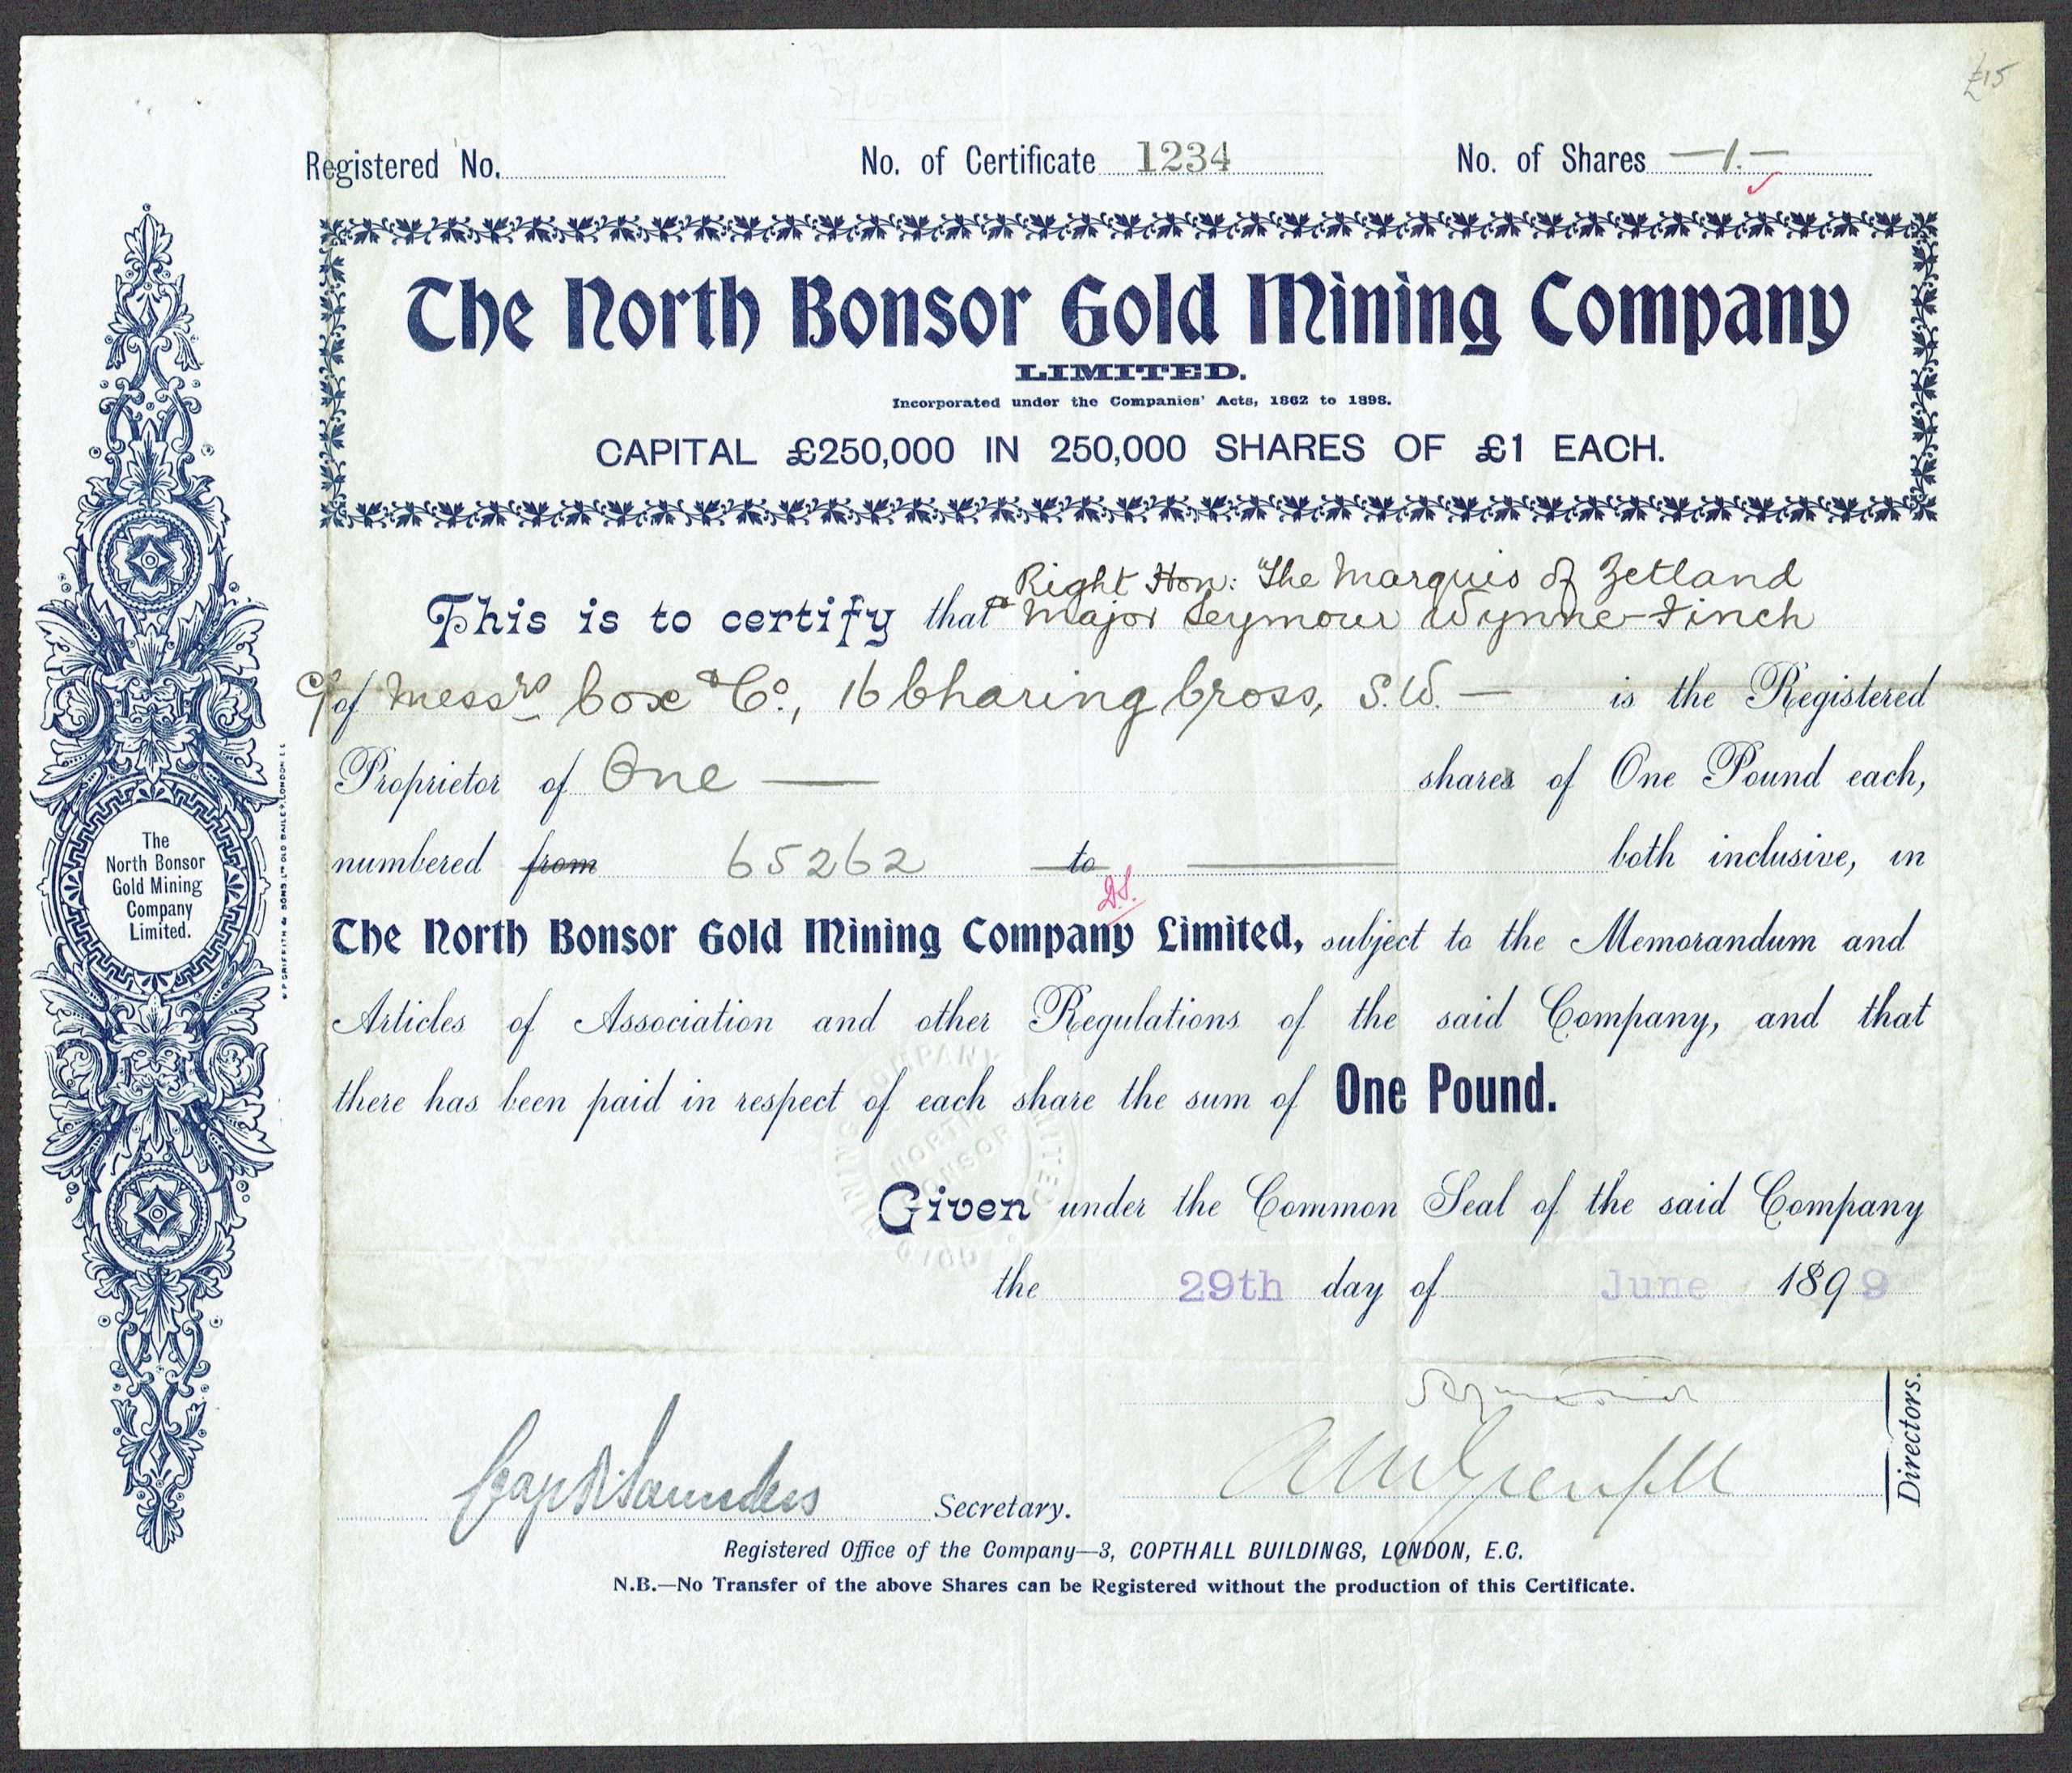 £15
Registered No. No. of Certificate 1234 No. of Shares —1.—
The North Bonsor Gold Mining Company
LIMITED.
Incorporated under the Companies' Acts, 1862 to 1898.
CAPITAL £250,000 IN 250,000 SHARES OF £1 EACH.
Right Hon: The Marquis of Zetland
This is to certify that & Major Seymour Wynne-Finch
c/of Messrs Cox & Co., 16 Charing Cross, S.W. — is the Registered
Proprietor of One — shares of One Pound each,
numbered from 65262 to — both inclusive, in
D.S.
The North Bonsor Gold Mining Company Limited, subject to the Memorandum and
Articles of Association and other Regulations of the said Company, and that
there has been paid in respect of each share the sum of One Pound.
Given under the Common Seal of the said Company
the 29th day of June 1899
Saunders Secretary.
Grenfell
Directors.
Registered Office of the Company—3, COPTHALL BUILDINGS, LONDON, E.C.
N.B.—No Transfer of the above Shares can be Registered without the production of this Certificate.
The
North Bonsor
Gold Mining
Company
Limited.
GRIFFITH & SONS, LTD OLD BAILEY, LONDON E.C
NORTH BONSOR GOLD MINING COMPANY LIMITED